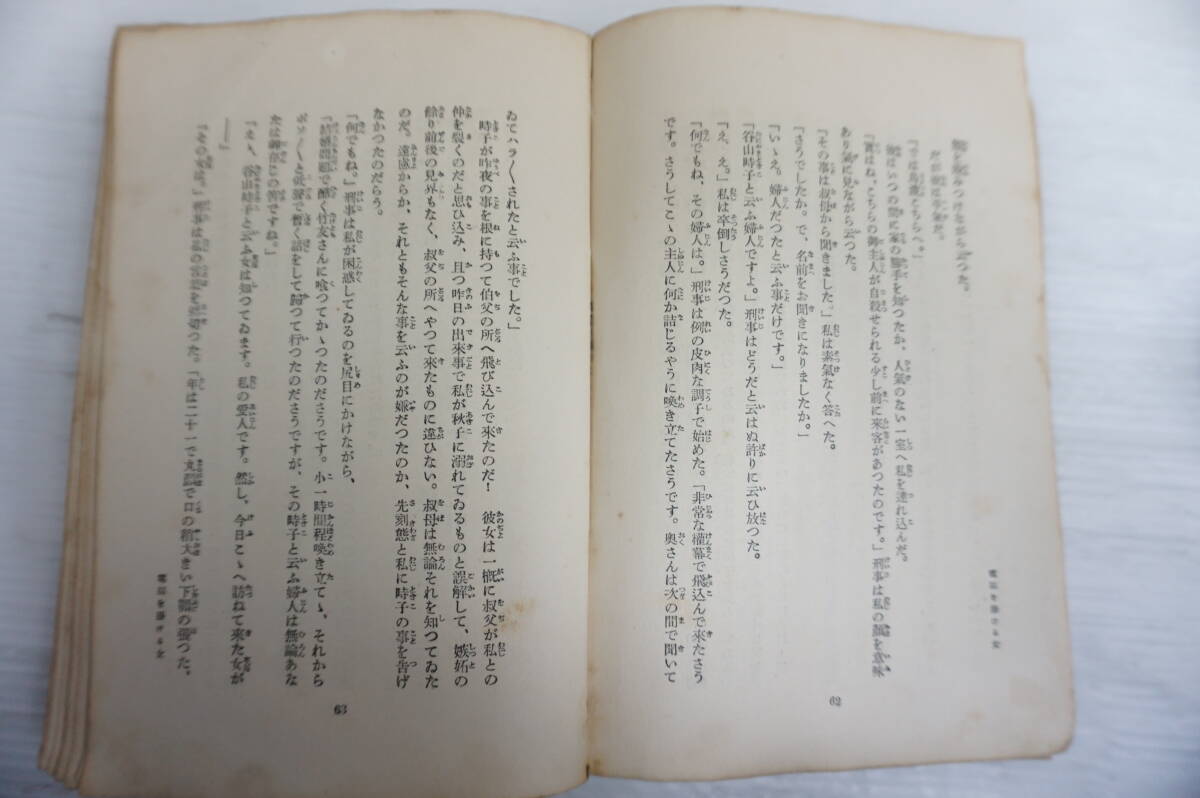 を睨みつけながら云つた。
だが彼は平氣だ。
『では鳥渡こちらへ。』
彼はいつの間に家の勝手を知つたか、人氣のない一室へ私を連れ込んだ。
『實はね、こちらの御主人が自殺せられる少し前に來客があつたのです。』刑事は私の顏を意味
あり氣に見ながら云つた。
『その事は叔母から聞きました。』私は素氣なく答へた。
『さうでしたか。で、名前をお聞きになりましたか。』
『いゝえ。婦人だつたと云ふ事だけです。』
『谷山時子と云ふ婦人ですよ。』刑事はどうだと云はぬ許りに云ひ放つた。
『え、え。』私は卒倒しさうだつた。
『何でもね、その婦人は。』刑事は例の皮肉な調子で始めた。『非常な權幕で飛込んで來たさう
です。さうしてこゝの主人に何か詰じるやうに喚き立てたさうです。奧さんは次の間で聞いて
電話を掛ける女
62
ゐてハラ〳〵されたと云ふ事でした。』
時子が昨夜の事を根に持つて伯父の所へ飛び込んで來たのだ！　彼女は一概に叔父が私との
仲を裂くのだと思ひ込み、且つ昨日の出來事で私が秋子に溺れてゐるものと誤解して、嫉妬の
餘り前後の見界もなく、叔父の所へやつて來たものに違ひない。叔母は無論それを知つてゐた
のだ。遠慮からか、それともそんな事を云ふのが嫌だつたのか、先刻態と私に時子の事を告げ
なかつたのだらう。
『何でもね。』刑事は私が困惑してゐるのを尻目にかけながら、
『結婚問題で酷く竹友さんに喰つてかゝつたのださうです。小一時間程喚き立てゝ、それから
ボソ〳〵と低聲で暫く話をして歸つて行つたのださうですが、その時子と云ふ婦人は無論あな
たは御存じの筈ですね。』
『えゝ、谷山時子と云ふ女は知つてゐます。私の愛人です。然し、今日こゝへ訪ねて來た女が
――』
『その女は。』刑事は私の言葉を遮切つた。『年は二十一で丸顏で口の稍大きい下顎の張つた、
電話を掛ける女
63